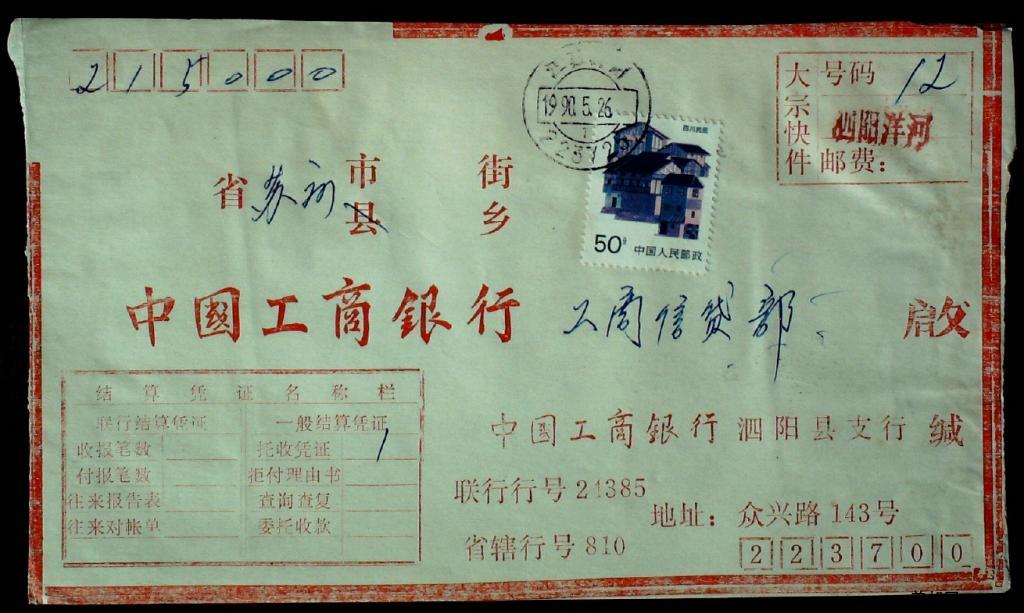 215000
大宗快件
号码 12
泗阳洋河
邮费：
1990.5.26
四川民居
50分 中国人民邮政
省 苏州 市县 街乡
中國工商銀行 工商信贷部 启
结算凭证名称栏
联行结算凭证 一般结算凭证
收报笔数 托收凭证 1
付报笔数 拒付理由书
往来报告表 查询查复
往来对帐单 委托收款
中国工商銀行 泗阳县支行 缄
联行行号 24385
地址：众兴路 143号
省辖行号 810
223700